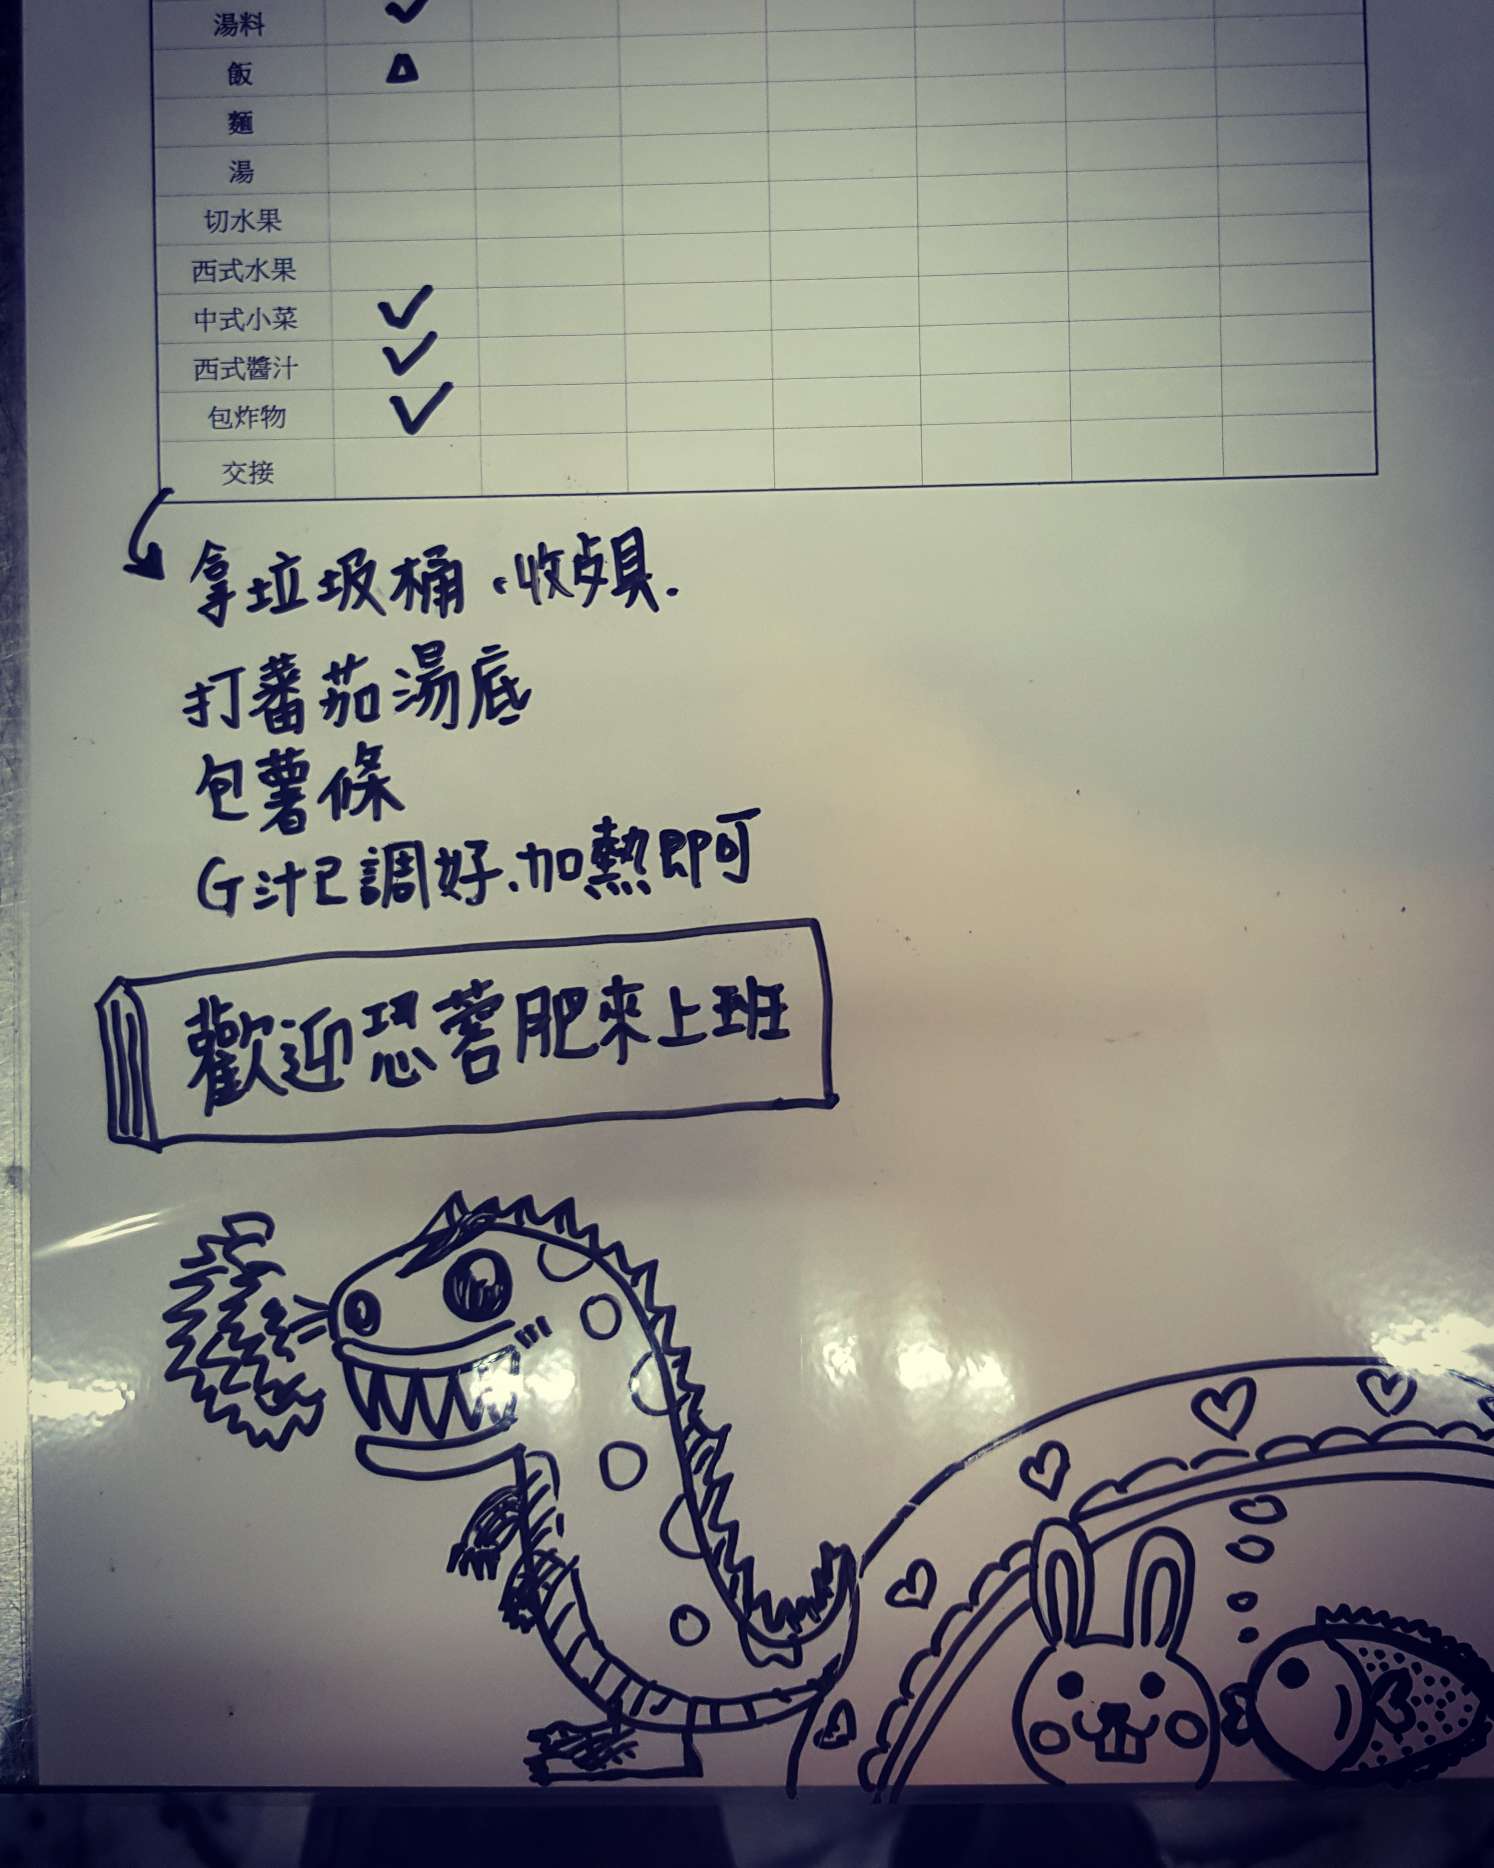 湯料 ✓
飯 △
麵
湯
切水果
西式水果
中式小菜 ✓
西式醬汁 ✓
包炸物 ✓
交接
拿垃圾桶．收
打蕃茄湯底
包薯條
G汁已調好.加熱即可
歡迎恐龍肥來上班